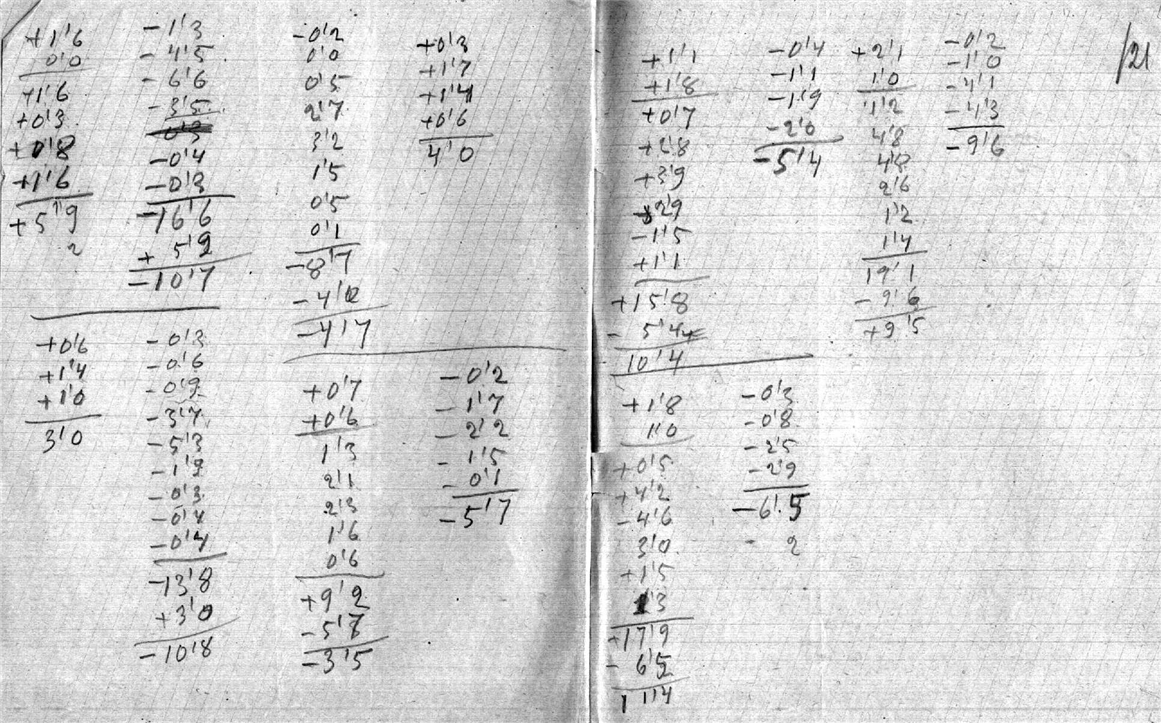 +1'6
0'0
+1'6
+0'3
+0'8
+1'6
+5'9
2
-1'3
-4'5
-6'6
-3'5
-0'4
-0'3
-16'6
+5'9
-10'7
+0'6
+1'4
+1'0
3'0
-0'3
-0'6
-0'9
-3'7
-5'3
-1'9
-0'3
-0'4
-0'4
-13'8
+3'0
-10'8
-0'2
0'0
0'5
2'7
3'2
1'5
0'5
0'1
-8'7
-4'0
-4'7
+0'3
+1'7
+1'4
+0'6
4'0
+0'7
+0'6
1'3
2'1
2'3
1'6
0'6
+9'2
-5'7
-3'5
-0'2
-1'7
-2'2
-1'5
-0'1
-5'7
+1'1
+1'8
+0'7
+2'8
+3'9
2'9
-1'5
+1'1
+15'8
- 5'4
10'4
-0'4
-1'1
-1'9
-2'0
-5'4
+2'1
1'0
1'2
4'8
4'8
2'6
1'2
1'4
19'1
-9'6
+9'5
-0'2
-1'0
-4'1
-4'3
-9'6
/21
+1'8
1'0
+0'5
+4'2
-4'6
3'0
+1'5
1'3
+17'9
- 6'5
11'4
-0'3
-0'8
-2'5
-2'9
-6'5
- 2